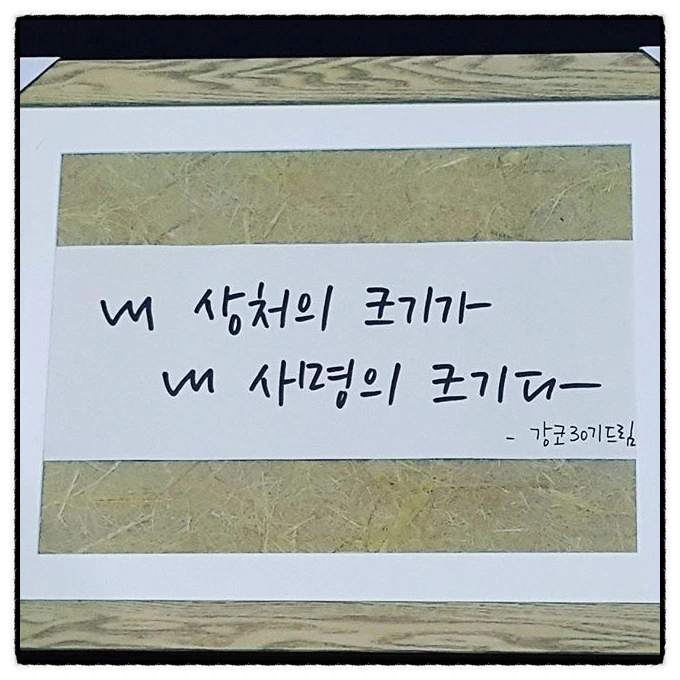 내 상처의 크기가
내 사명의 크기다
- 강코30기드림